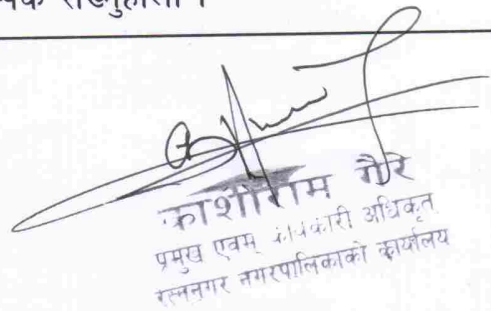 काशीराम गैरे
प्रमुख एवम् कार्यकारी अधिकृत
रत्ननगर नगरपालिकाको कार्यालय